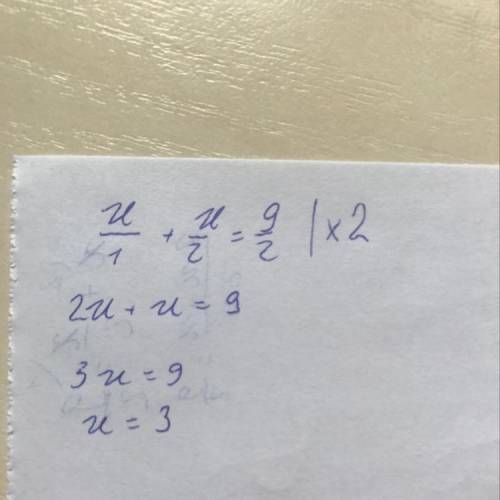 x/1 + x/2 = 9/2 | ×2
2x + x = 9
3x = 9
x = 3